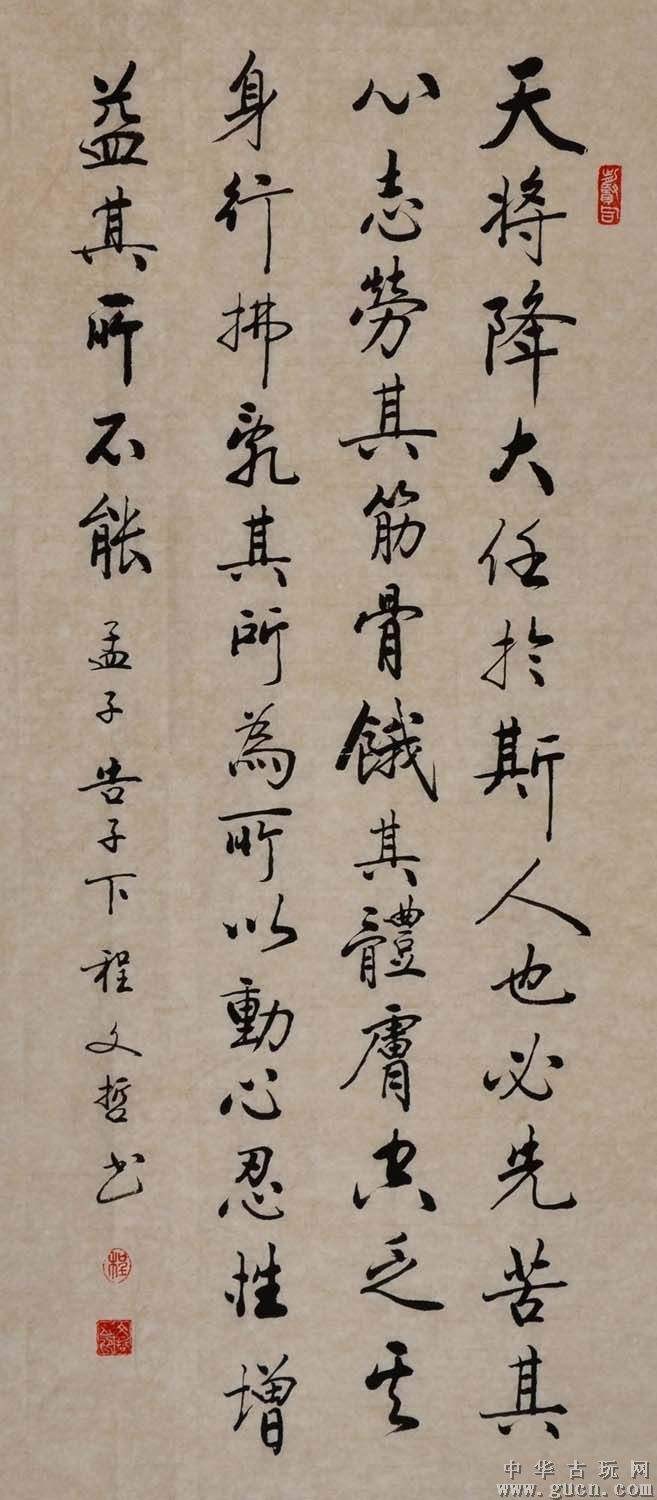 天将降大任於斯人也必先苦其
心志勞其筋骨餓其體膚空乏其
身行拂乱其所為所以動心忍性增
益其所不能 孟子告子下 程文哲书
程
中华古玩网
www.gucn.com